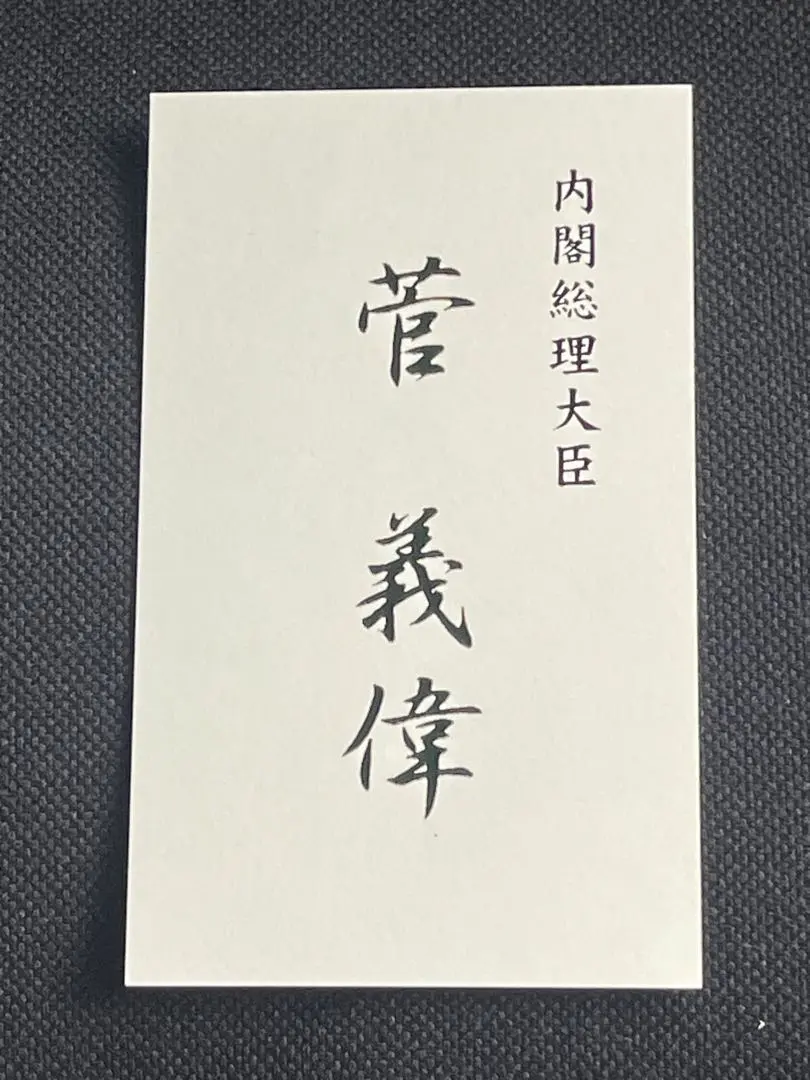 内閣総理大臣
菅 義偉